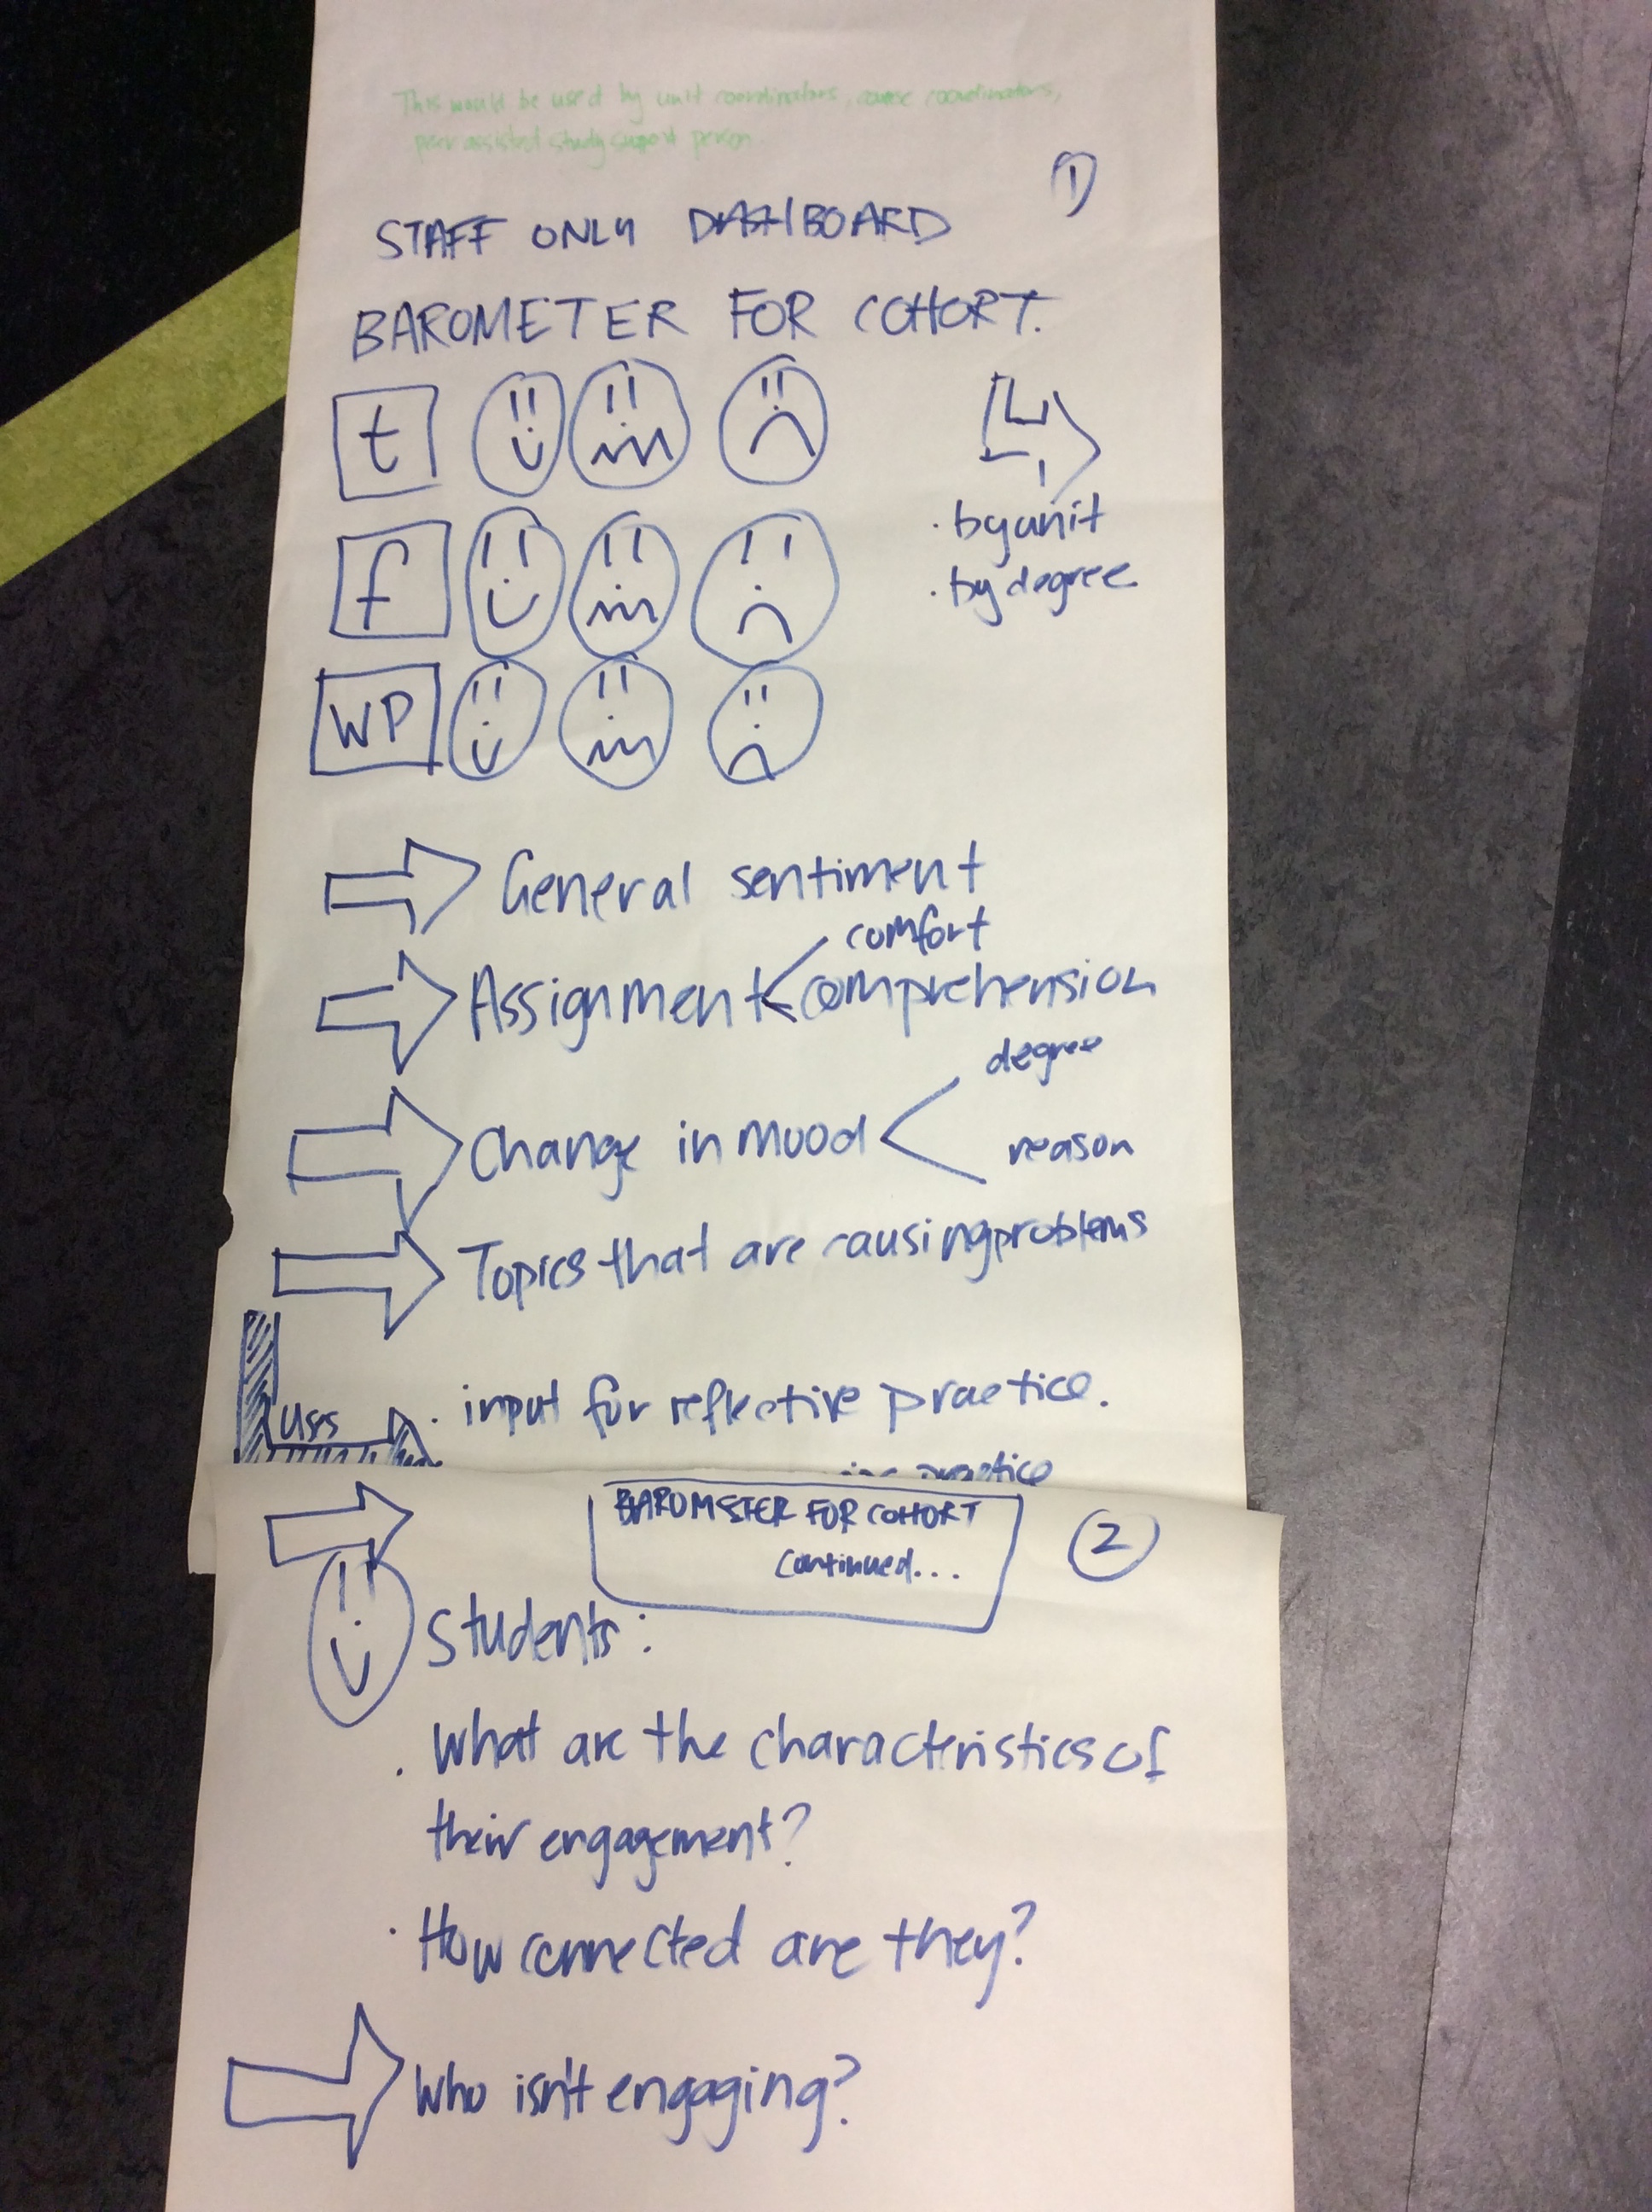 This would be used by unit coordinators, course coordinators,
peer assisted study support person.
1
STAFF ONLY DASHBOARD
BAROMETER FOR COHORT.
t
f
WP
. by unit
. by degree
General sentiment
comfort
Assignment comprehension
degree
Change in mood
reason
Topics that are causing problems
uses
. input for reflective practice.
practice
BAROMETER FOR COHORT
continued...
2
students:
. What are the characteristics of
their engagement?
. How connected are they?
Who isn't engaging?